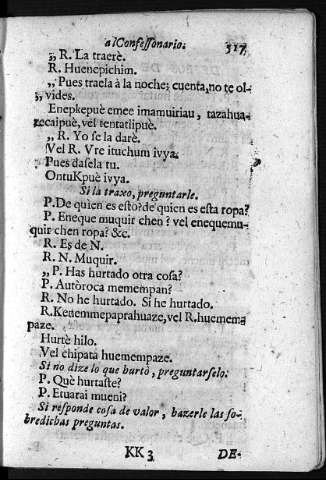 al Confessonario. 317
„ R. La traerè.
R. Huenepichim.
„ Pues traela à la noche; cuenta, no te ol-
„ vides.
Enepkepuè emee imamuiriau, tazahua-
recaipuè, vel tentatlipuè.
„ R. Yo se la darè.
Vel R. Vre ituchum ivya.
Pues dasela tu.
OntuKpuè ivya.
Si la traxo, preguntarle.
P. De quien es esto? de quien es esta ropa?
P. Eneque muquir chen? vel enequemu-
quir chen ropa? &c.
R. Es de N.
R. N. Muquir.
„ P. Has hurtado otra cosa?
P. Autòroca memempan?
R. No he hurtado. Si he hurtado.
R. Kenemmepaprahuaze, vel R. huemem-
paze.
Hurtè hilo.
Vel chipata huemempaze.
Si no dize lo que hurtò, preguntarselo.
P. Què hurtaste?
P. Etuarai mueni?
Si responde cosa de valor, hazerle las so-
bredichas preguntas.
KK 3 DE-